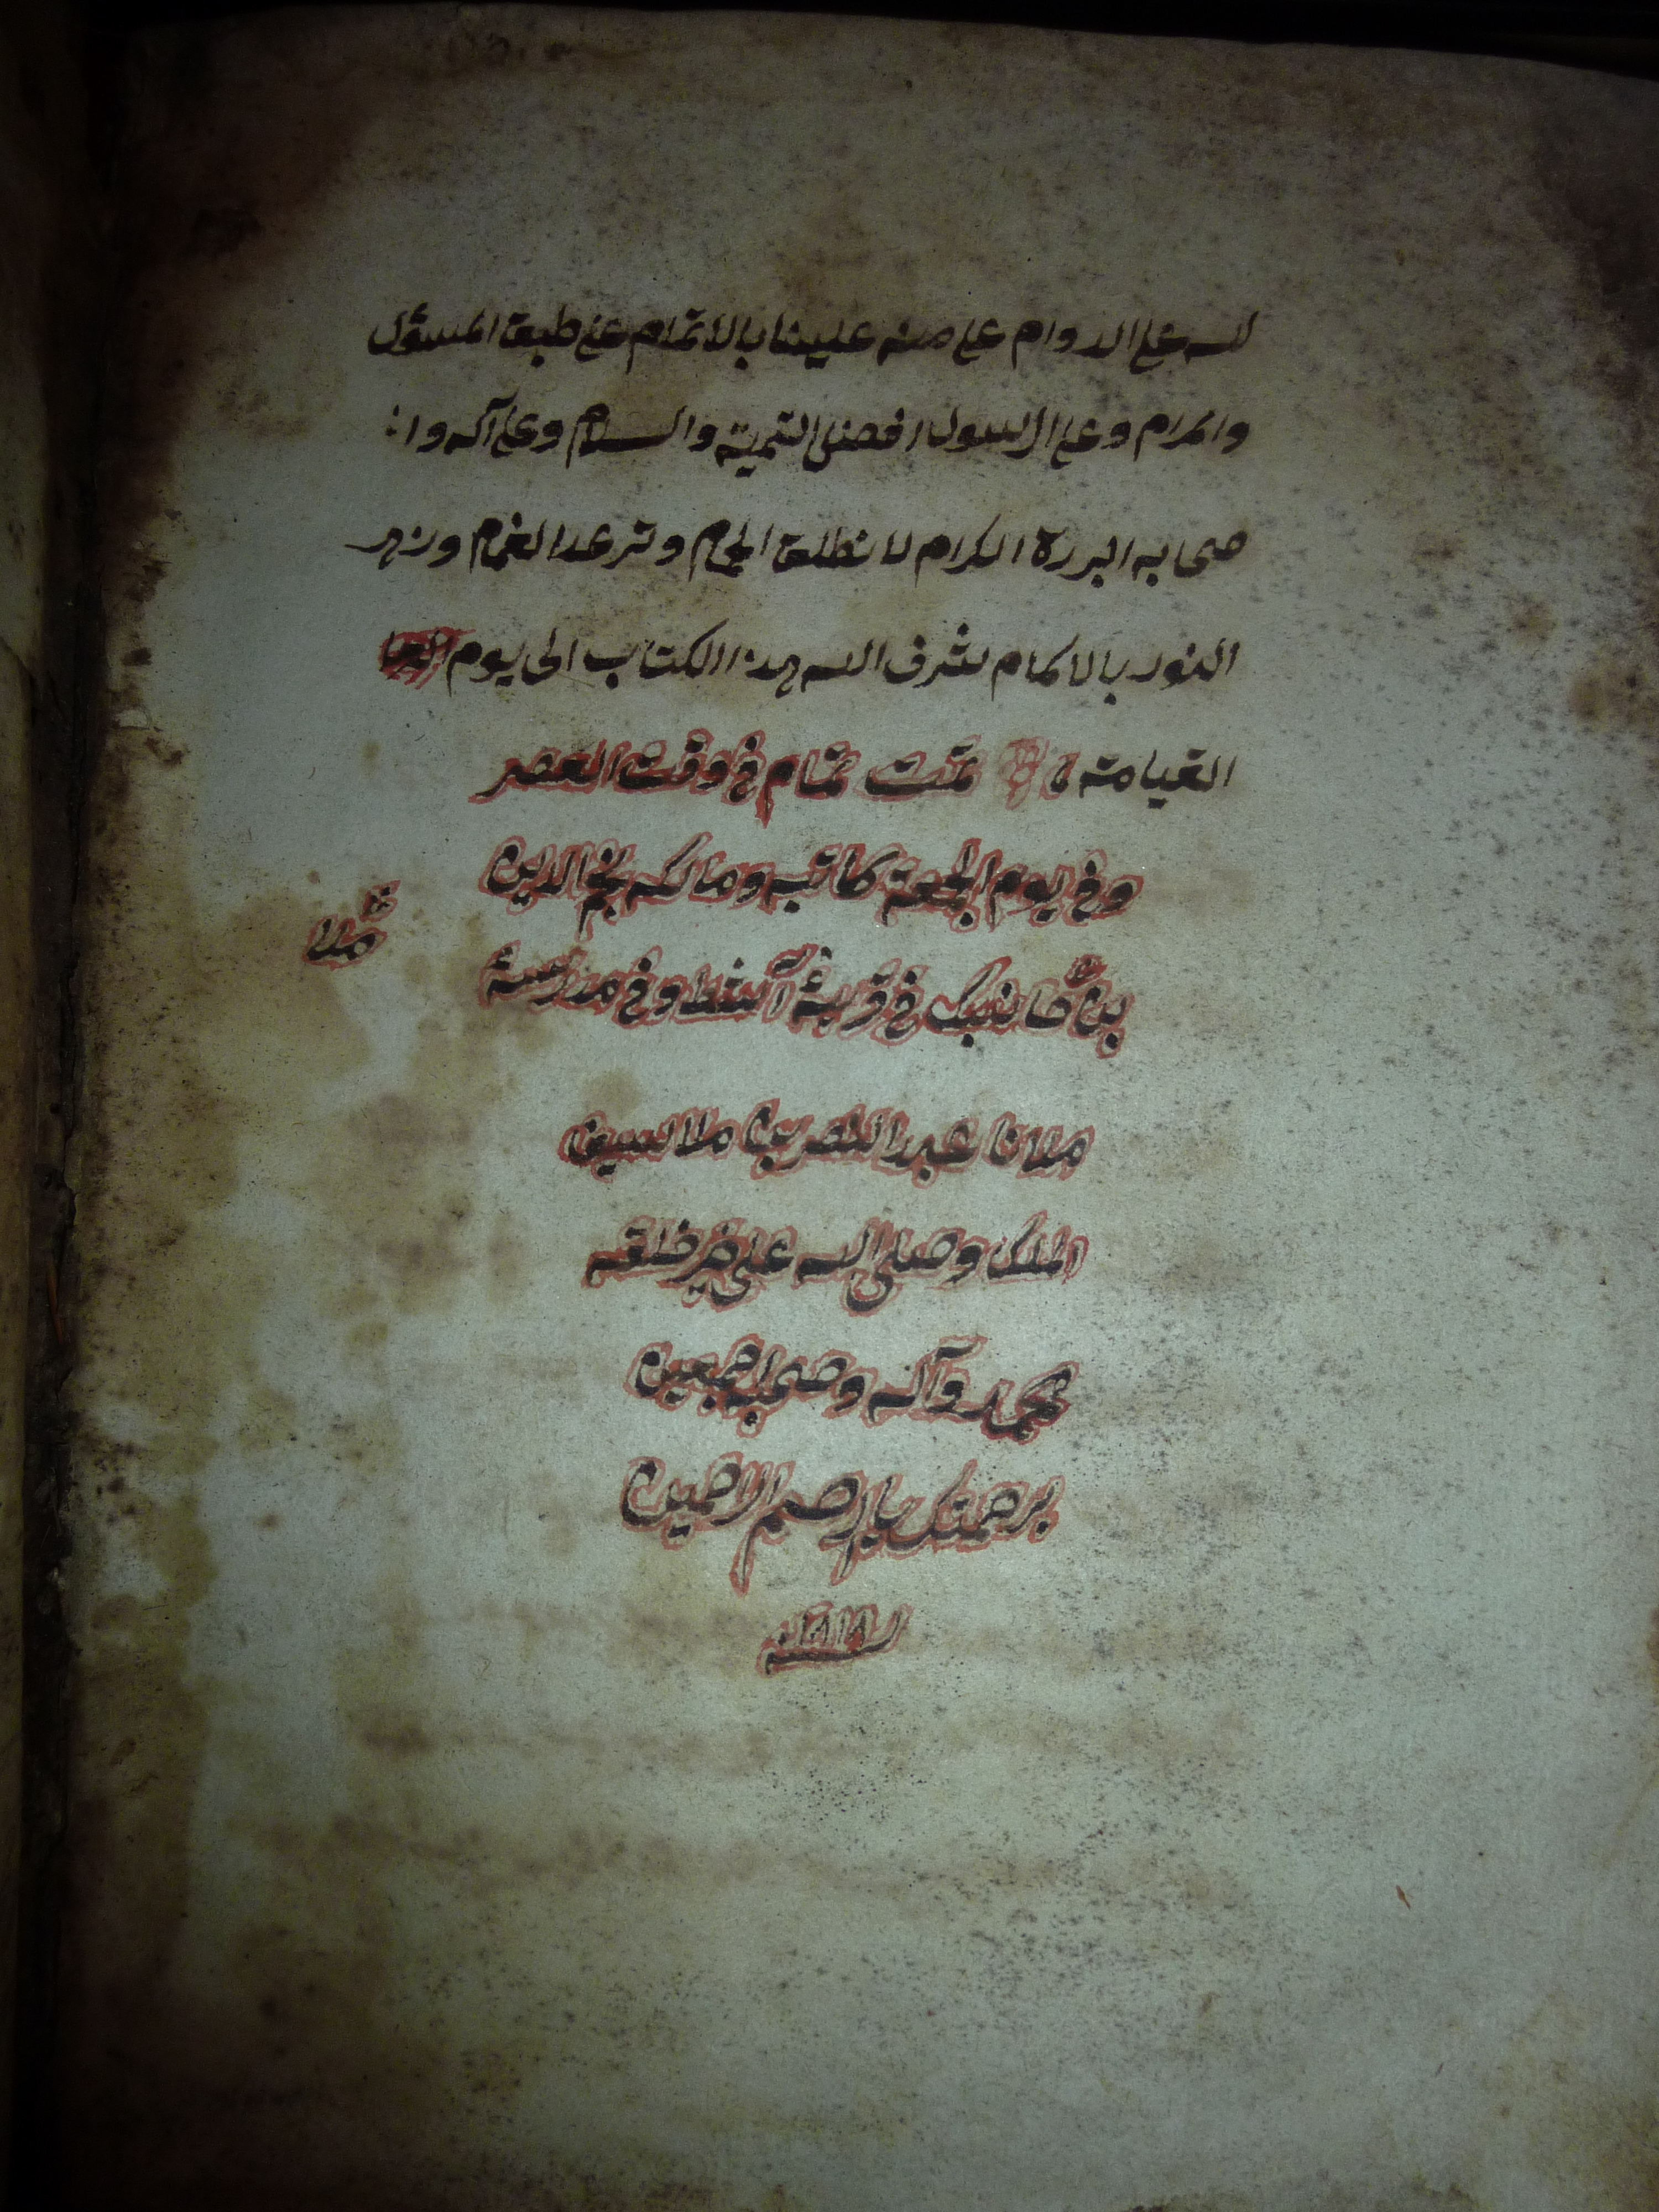 لله على الدوام على منه علينا بالاتمام على طبق المسؤل
والمرام وعلى الرسول افضل التحية والسلام وعلى آله وا
صحابه البررة الكرام ما نطلق الحمام وترعد الغمام وزهر
النور بالاكمام شرف الله هذا الكتاب الى يوم
القيامة تمت تمام في وقت العصر
وفي يوم الجمعة كاتبه ومالكه نجم الدين
بن في قرية وفي مدرسة
ملا
ملانا عبد النصر بن ملا
الملك وصلى الله على خير خلقه
محمد وآله وصحبه اجمعين
برحمتك يا ارحم الراحمين